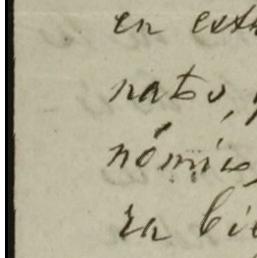 en est
nato,
nómico
za bie